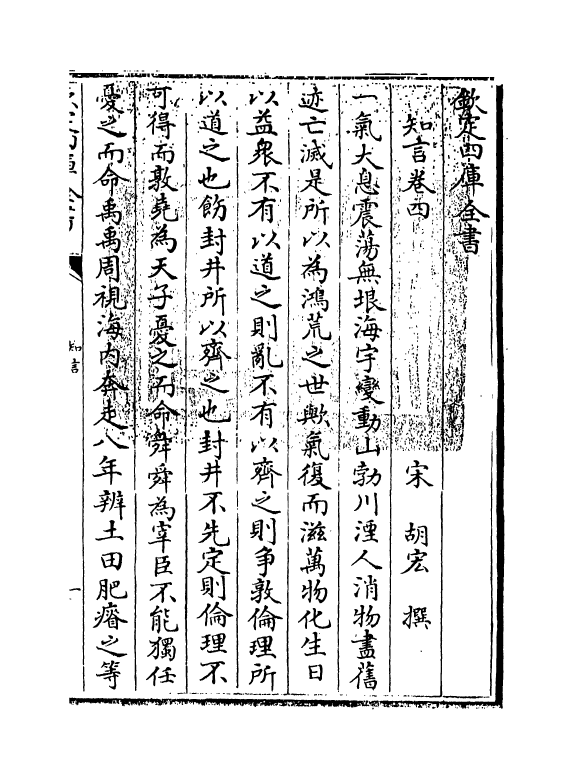 欽定四庫全書
知言卷四
宋 胡宏 撰
一氣大息震蕩無垠海宇變動山勃川湮人消物盡舊
迹亡滅是所以為鴻荒之世歟氣復而滋萬物化生日
以益衆不有以道之則亂不有以齊之則争敦倫理所
以道之也飭封井所以齊之也封井不先定則倫理不
可得而敦堯為天子憂之而命舜舜為宰臣不能獨任
憂之而命禹禹周視海内奔走八年辨土田肥瘠之等
知言
一